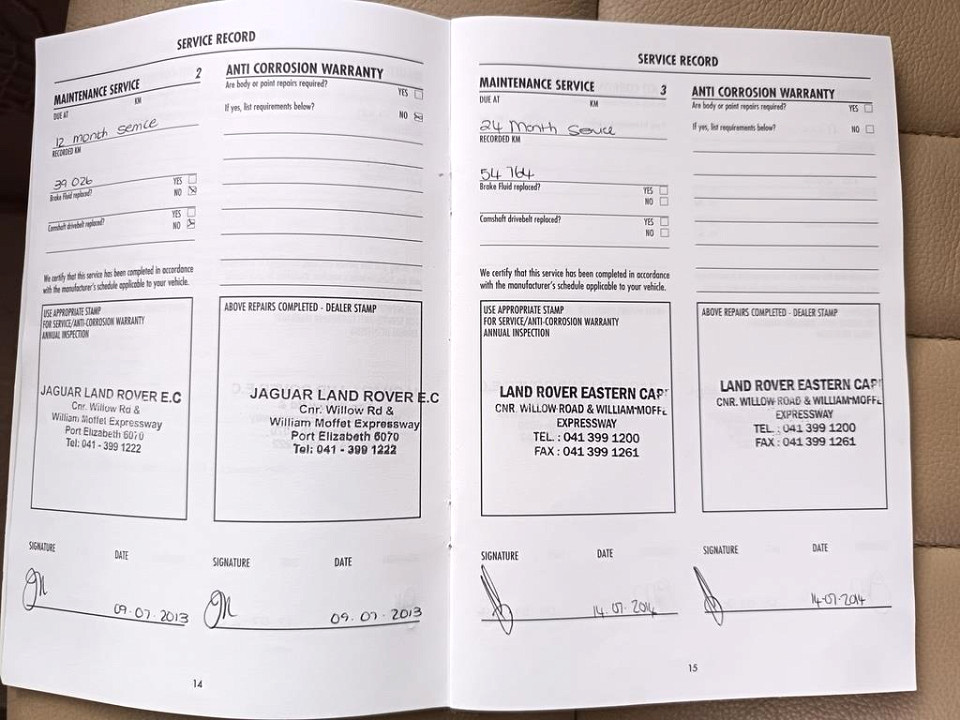 SERVICE RECORD
MAINTENANCE SERVICE 2
DUE AT KM
12 month service
RECORDED KM
39 026
Brake Fluid replaced? YES
NO
Camshaft drivebelt replaced? YES
NO
We certify that this service has been completed in accordance
with the manufacturer's schedule applicable to your vehicle.
USE APPROPRIATE STAMP
FOR SERVICE/ANTI-CORROSION WARRANTY
ANNUAL INSPECTION
JAGUAR LAND ROVER E.C
Cnr. Willow Rd &
William Moffet Expressway
Port Elizabeth 6070
Tel: 041 - 399 1222
SIGNATURE DATE
09.07.2013
ANTI CORROSION WARRANTY
Are body or paint repairs required? YES
If yes, list requirements below? NO
ABOVE REPAIRS COMPLETED - DEALER STAMP
JAGUAR LAND ROVER E.C
Cnr. Willow Rd &
William Moffet Expressway
Port Elizabeth 6070
Tel: 041 - 399 1222
SIGNATURE DATE
09.07.2013
14
SERVICE RECORD
MAINTENANCE SERVICE 3
DUE AT KM
24 Month Service
RECORDED KM
54 764
Brake Fluid replaced? YES
NO
Camshaft drivebelt replaced? YES
NO
We certify that this service has been completed in accordance
with the manufacturer's schedule applicable to your vehicle.
USE APPROPRIATE STAMP
FOR SERVICE/ANTI-CORROSION WARRANTY
ANNUAL INSPECTION
LAND ROVER EASTERN CAP
CNR. WILLOW ROAD & WILLIAM MOFFE
EXPRESSWAY
TEL. : 041 399 1200
FAX : 041 399 1261
SIGNATURE DATE
14.07.2014
ANTI CORROSION WARRANTY
Are body or paint repairs required? YES
If yes, list requirements below? NO
ABOVE REPAIRS COMPLETED - DEALER STAMP
LAND ROVER EASTERN CAP
CNR. WILLOW ROAD & WILLIAM MOFFE
EXPRESSWAY
TEL. : 041 399 1200
FAX : 041 399 1261
SIGNATURE DATE
14.07.2014
15